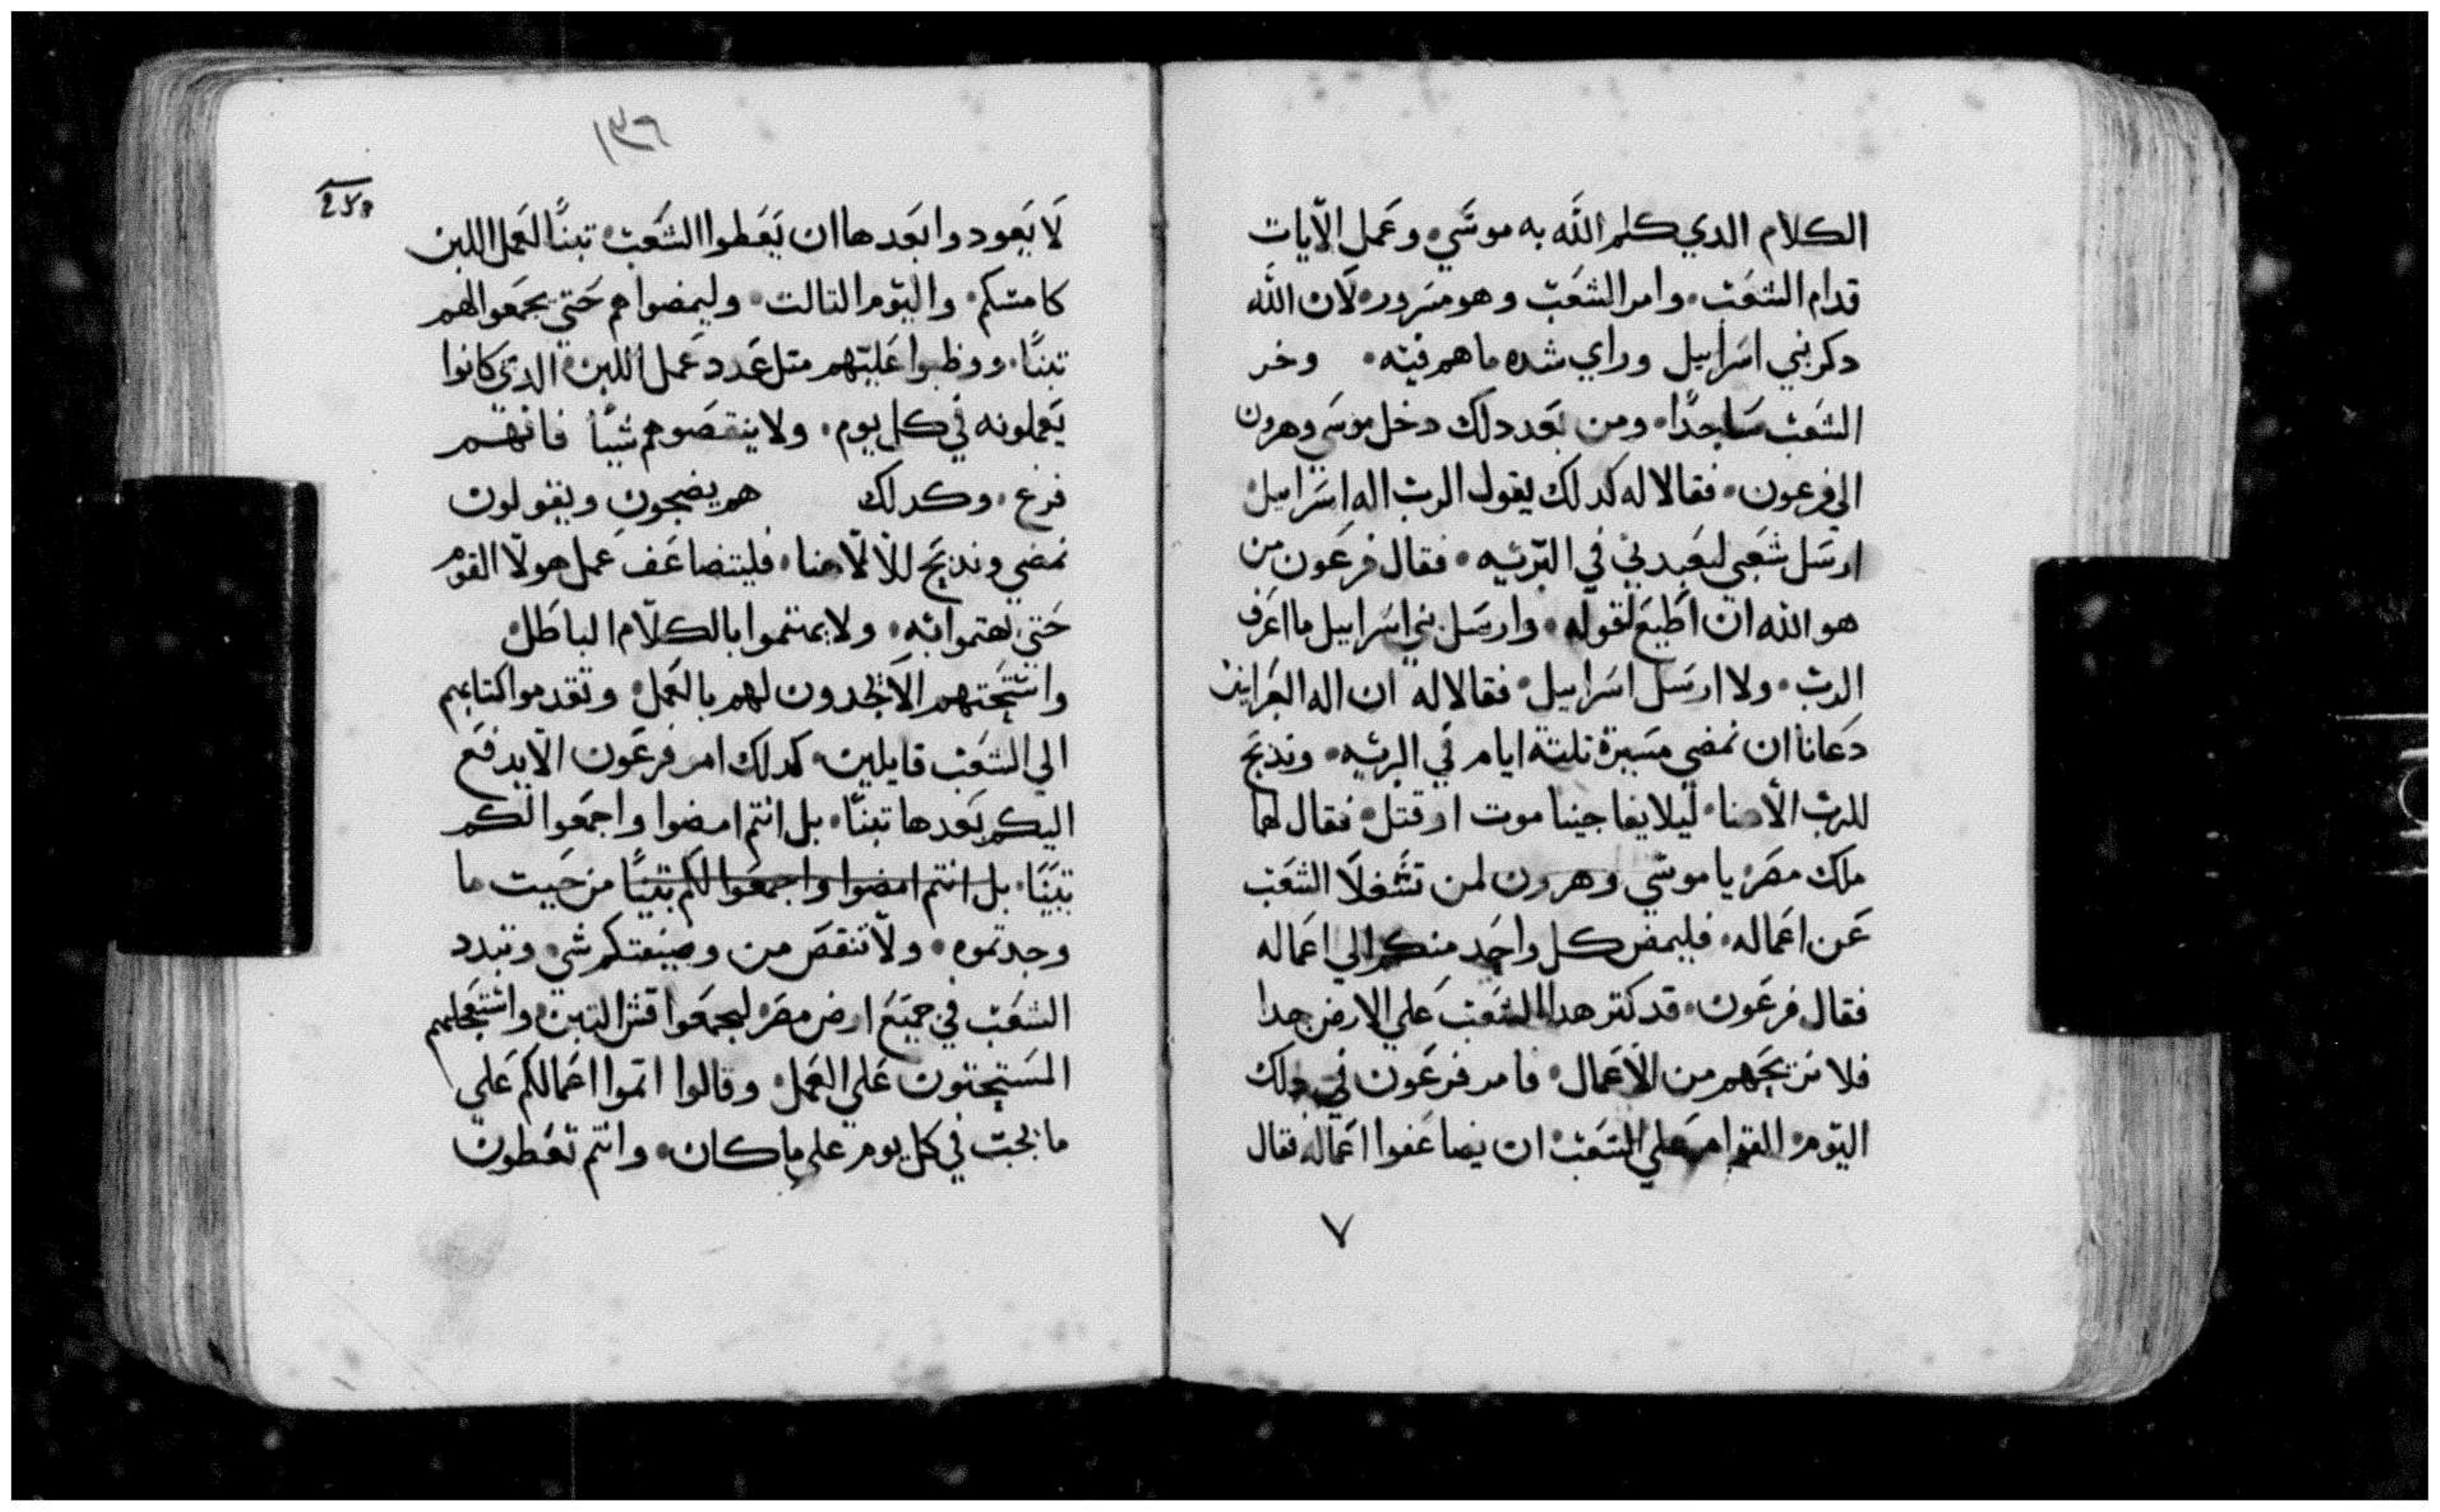 الكلام الدي كلم الله به موسي وعمل الايات
قدام الشعب وامر الشعب وهو مسرور لان الله
دكر بني اسراييل وراي شده ما هم فيه وخر
الشعب ساجدا ومن بعد دلك دخل موسي وهرون
الي فرعون فقالا له كدلك يقول الرب اله اسراييل
ارسل شعبي ليعبدني في البريه فقال فرعون من
هو الله ان اطيع لقوله وارسل بني اسراييل ما اعرف
الرب ولا ارسل اسراييل فقالا له ان اله العبرانين
دعانا ان نمضي مسيرة تلتة ايام في البريه وندبح
للرب الاهنا ليلا يفاجينا موت او قتل فقال لهما
ملك مصر يا موسي وهرون لمن تشغلا الشعب
عن اعماله فليمض كل واحد منكم الي اعماله
فقال فرعون قد كتر هدا الشعب علي الارض جدا
فلا نريحهم من الاعمال فامر فرعون في دلك
اليوم القوام علي الشعب ان يضاعفوا اعماله فقال
٧
١٣٦
لا يعودوا بعدها ان يعطوا الشعب تبنا لعمل اللبن
كامسكم واليوم التالت وليمضوا هم حتي يجمعوا لهم
تبنا ووظبوا عليهم متل عدد عمل اللبن الدي كانوا
يعملونه في كل يوم ولا ينقصوهم شيا فانهم
فرغ وكدلك هم يضجون ويقولون
نمضي وندبح للالاهنا فليتضاعف عمل هولا القوم
حتي يهتموا به ولا يهتموا بالكلام الباطل
واستحتهم الاخدون لهم بالعمل وتقدموا كتابهم
الي الشعب قايلين كدلك امر فرعون الا يدفع
اليكم بعدها تبنا بل انتم امضوا واجمعوا لكم
تبنا بل انتم امضوا واجمعوا لكم تبنا من حيت ما
وجدتموه ولا تنقص من وضيعتكم شي وتبدد
الشعب في جميع ارض مصر ليجمعوا قش التبن واستعجلهم
المستحتون علي العمل وقالوا اتموا اعمالكم علي
ما يجب في كل يوم علي ما كان وانتم تعطون